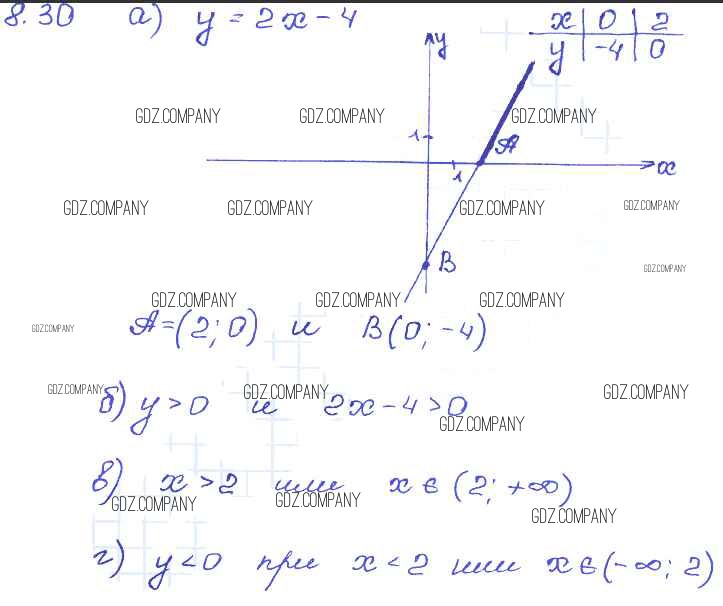 8.30 а) y = 2x - 4
x | 0 | 2
y | -4 | 0
y
GDZ.COMPANY GDZ.COMPANY GDZ.COMPANY
1
A
1
x
GDZ.COMPANY GDZ.COMPANY GDZ.COMPANY GDZ.COMPANY
B
GDZ.COMPANY
GDZ.COMPANY GDZ.COMPANY GDZ.COMPANY
GDZ.COMPANY
A=(2; 0) и B(0; -4)
GDZ.COMPANY GDZ.COMPANY GDZ.COMPANY
б) y > 0 и 2x - 4 > 0
GDZ.COMPANY
в) x > 2 или x ∈ (2; +∞)
GDZ.COMPANY GDZ.COMPANY GDZ.COMPANY
г) y < 0 при x < 2 или x ∈ (-∞; 2)